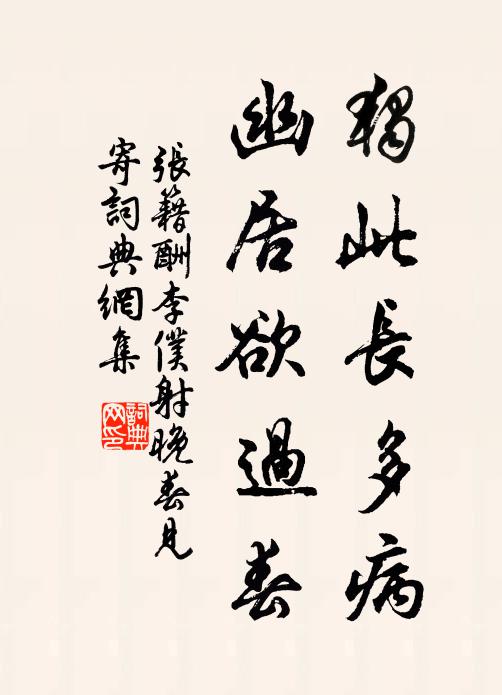 獨此長多病
幽居欲過春
張籍酬李僕射晚春見
寄詞典網集
詞典網印